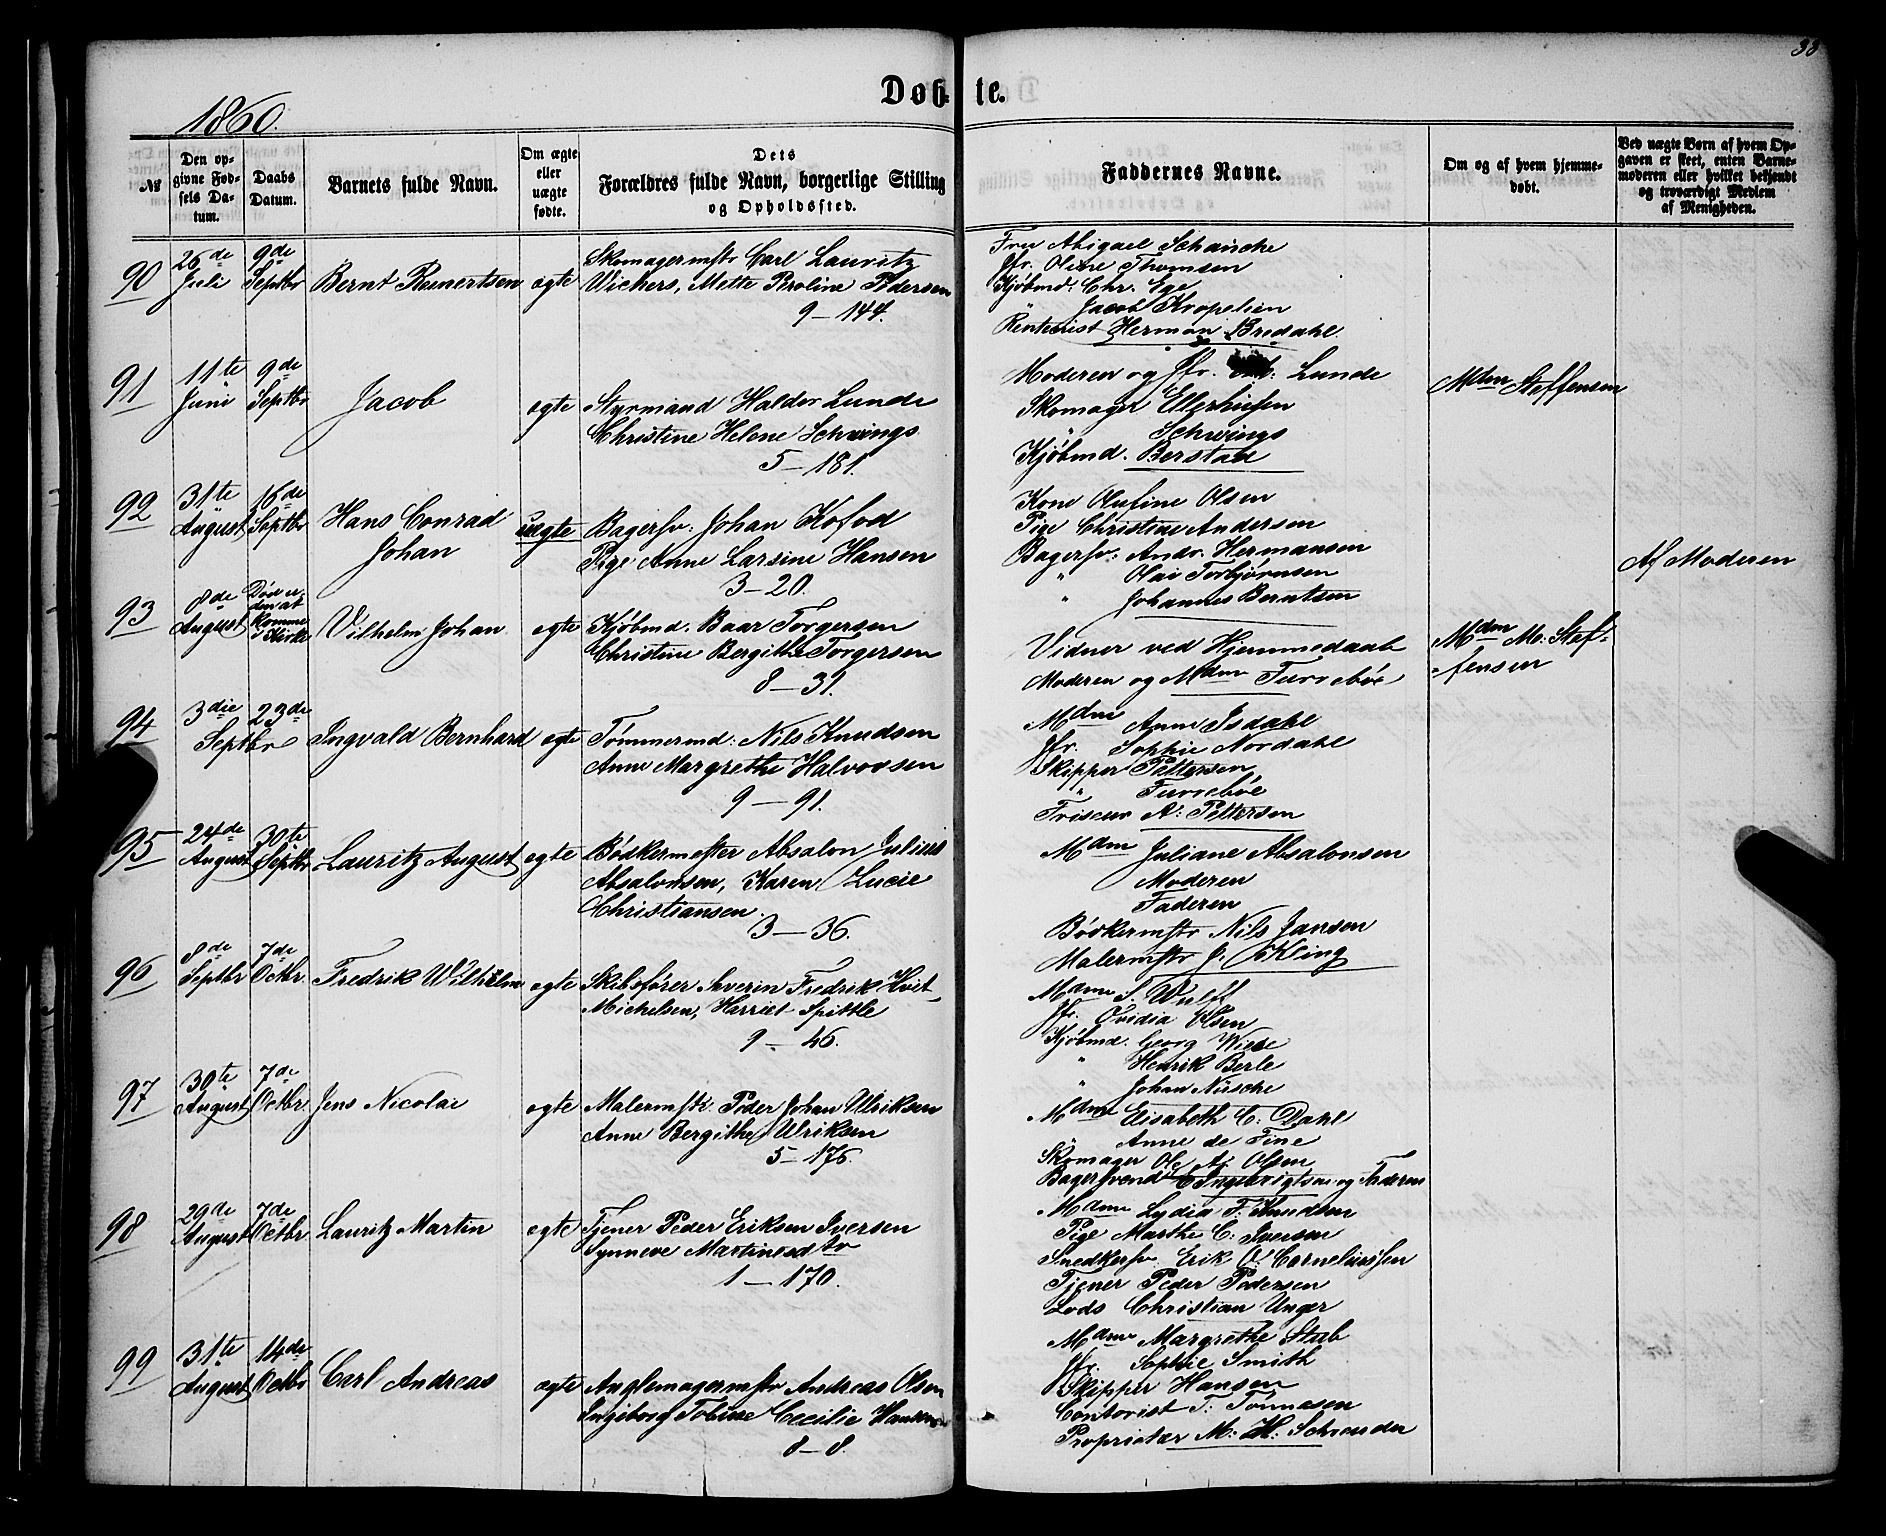 33
1860.
Døbte.
№
Den op-
givne Fød-
sels Da-
tum.
Daabs
Datum.
Barnets fulde Navn.
Om ægte
eller
uægte
fødte.
Dets
Forældres fulde Navn, borgerlige Stilling
og Opholdssted.
Faddernes Navne.
Om og af hvem hjemme-
døbt.
Ved uægte Børn af hvem Op-
gaven er skeet, enten Barne-
moderen eller hvilket bekjendt
og troværdigt Medlem
af Menigheden.
90
26de
Juli
9de
Septbr
Bernt Reinertsen
egte
Skomagermstr Carl Lauritz
Wichers, Mette Peroline Pedersen
9 - 144.
Fru Abigael Schanche
Jfr. Oline Thomsen
Kjøbmd: Chr. Ege
" Jacob Kropelien
Rentenist Herman Bredahl
91
11te
Juni
9de
Septbr
Jacob
egte
Styrmand Haldor Lunde
Christine Helene Schwings
5 - 181.
Moderen og Jfr. Lunde
Skomager Ellerhusen
" Schwings
Kjøbmd. Berstad
Mdm Steffensen
92
31te
August
16de
Septbr
Hans Conrad
Johan
uegte
Bagersv: Johan Kofod
Pige Anne Larsine Hansen
3 - 20.
Kone Olufine Olsen
Pige Christine Andersen
Bagersv: Andr. Hermansen
" Olai Torbjørnsen
" Johannes Berntsen
Af Moderen
93
8de
August
Død in-
den at
komme
i Kirke
Vilhelm Johan
egte
Kjøbmd. Baar Torgersen
Christine Bergithe Torgersen
8 - 31.
Vidner ved Hjemmedaab
Moderen og Mdm Turrebøe
Mdm M: Stef-
-fensen
94
3die
Septbr
23de
Ingvald Bernhard
egte
Tømmermd: Nils Knudsen
Anne Margrethe Halvorsen
9 - 91.
Mdm Anne Isdahl
Jfr. Sophie Nordahl
Skipper Pettersen
" Turrebøe
Friseur A: Pettersen
95
24de
August
30te
Septbr
Lauritz August
egte
Bødkermester Absalon Julius
Absalonsen, Karen Lucie
Christiansen.
3 - 36.
Mdm Juliane Absalonsen
Moderen
Faderen
Bødkermstr Nils Jansen
Malermstr J. Kling
96
8de
Septbr
7de
Octbr.
Fredrik Wilhelm
egte
Skibsfører Severin Fredrik Hvit-
Michelsen, Harriet Spittle
9 - 46.
Mdm S. Wulff
Jfr. Ovidia Olsen
Kjøbmd. Georg Wiese
" Henrik Berle
" Johan Nüsche
97
30te
August
7de
Octbr.
Jens Nicolai
egte
Malermstr. Peder Johan Ulriksen
Anne Bergithe Ulriksen
5 - 176.
Mdm Elisabeth C: Dahl
" Anne de Fine
Skomager Ole A: Olsen
Bagersvend E Ingebrigtsen og Faderen
98
29de
August
7de
Octbr
Lauritz Martin
egte
Tjener Peder Eriksen Iversen
Synneve Martinusdtr
1 - 170.
Mdm Lydia F: Knudsen
Pige Marthe C: Iversen
Snedkersv. Erik O: Corneliussen
Tjener Peder Pedersen
Lods Christian Unger
99
31te
August
14de
Octbr
Carl Andreas
egte
Anglemagermstr Andreas Olsen
Ingeborg Tobine Cecilie Hansen
8 - 8.
Mdm Margrethe Stub
Jfr. Sophie Smith
Skipper Hansen
Contorist T: Tønnesen
Proprietær M: H: Schreuder